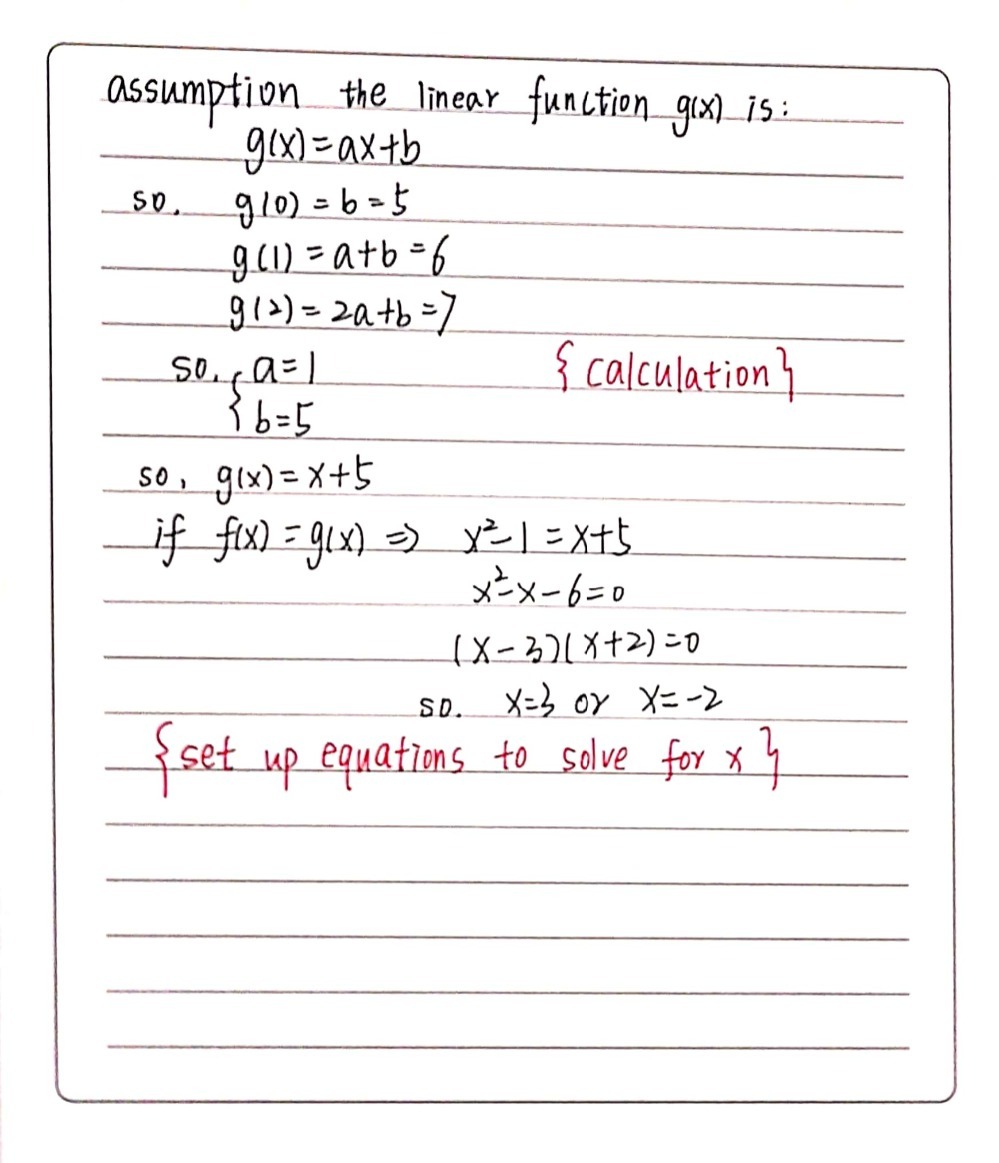 assumption the linear function g(x) is:
g(x)=ax+b
so. g(0) = b = 5
g(1) = a+b = 6
g(2) = 2a+b =7
so. { a=1 {calculation}
b=5
so, g(x) = x+5
if f(x) = g(x) ⇒ x²-1 = x+5
x²-x-6=0
(x-3)(x+2)=0
so. x=3 or x=-2
{set up equations to solve for x}